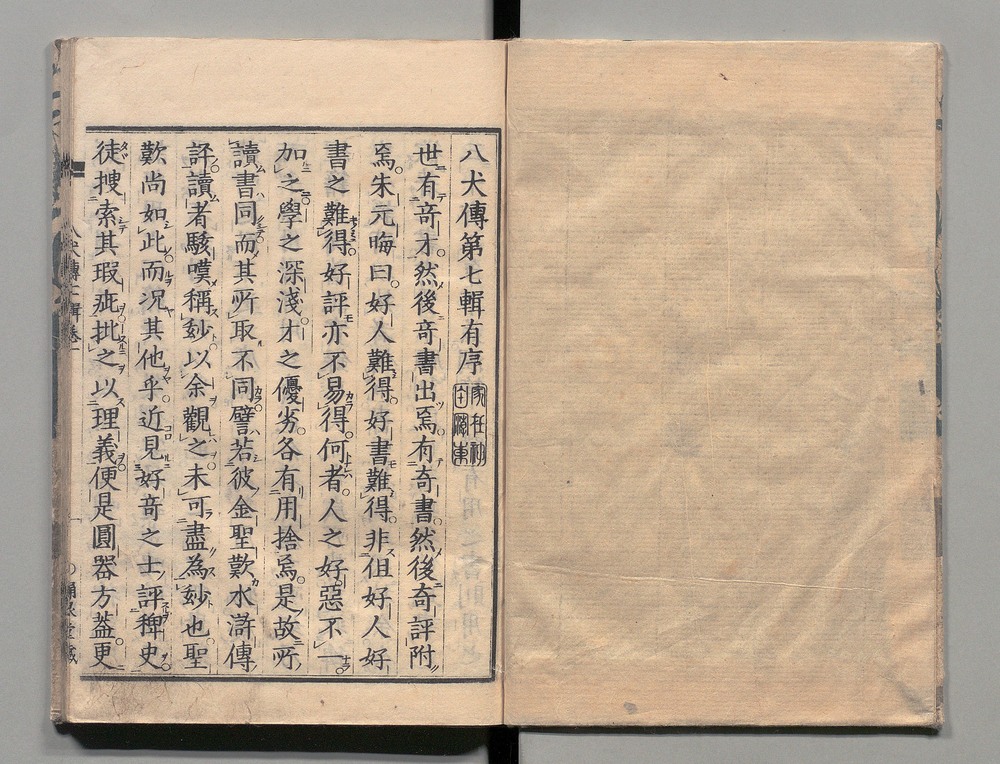 八犬傳第七輯有序
世有竒才。然後竒書出焉。有竒書。然後竒評附
焉。朱元晦曰。好人難得。好書難得。非但好人好
書之難得。好評亦不易得。何者。人之好惡不一。
加之學之深淺。才之優劣。各有用捨焉。是故所
讀書同而其所取不同。譬若彼金聖歎水滸傳
評。讀者駭嘆稱玅。以余觀之。未可盡為玅也。聖
歎尚如此。而况其他乎。近見好竒之士評稗史。
徒搜索其瑕疵。批之以理義。便是圓器方蓋。更
八犬傳七輯卷一